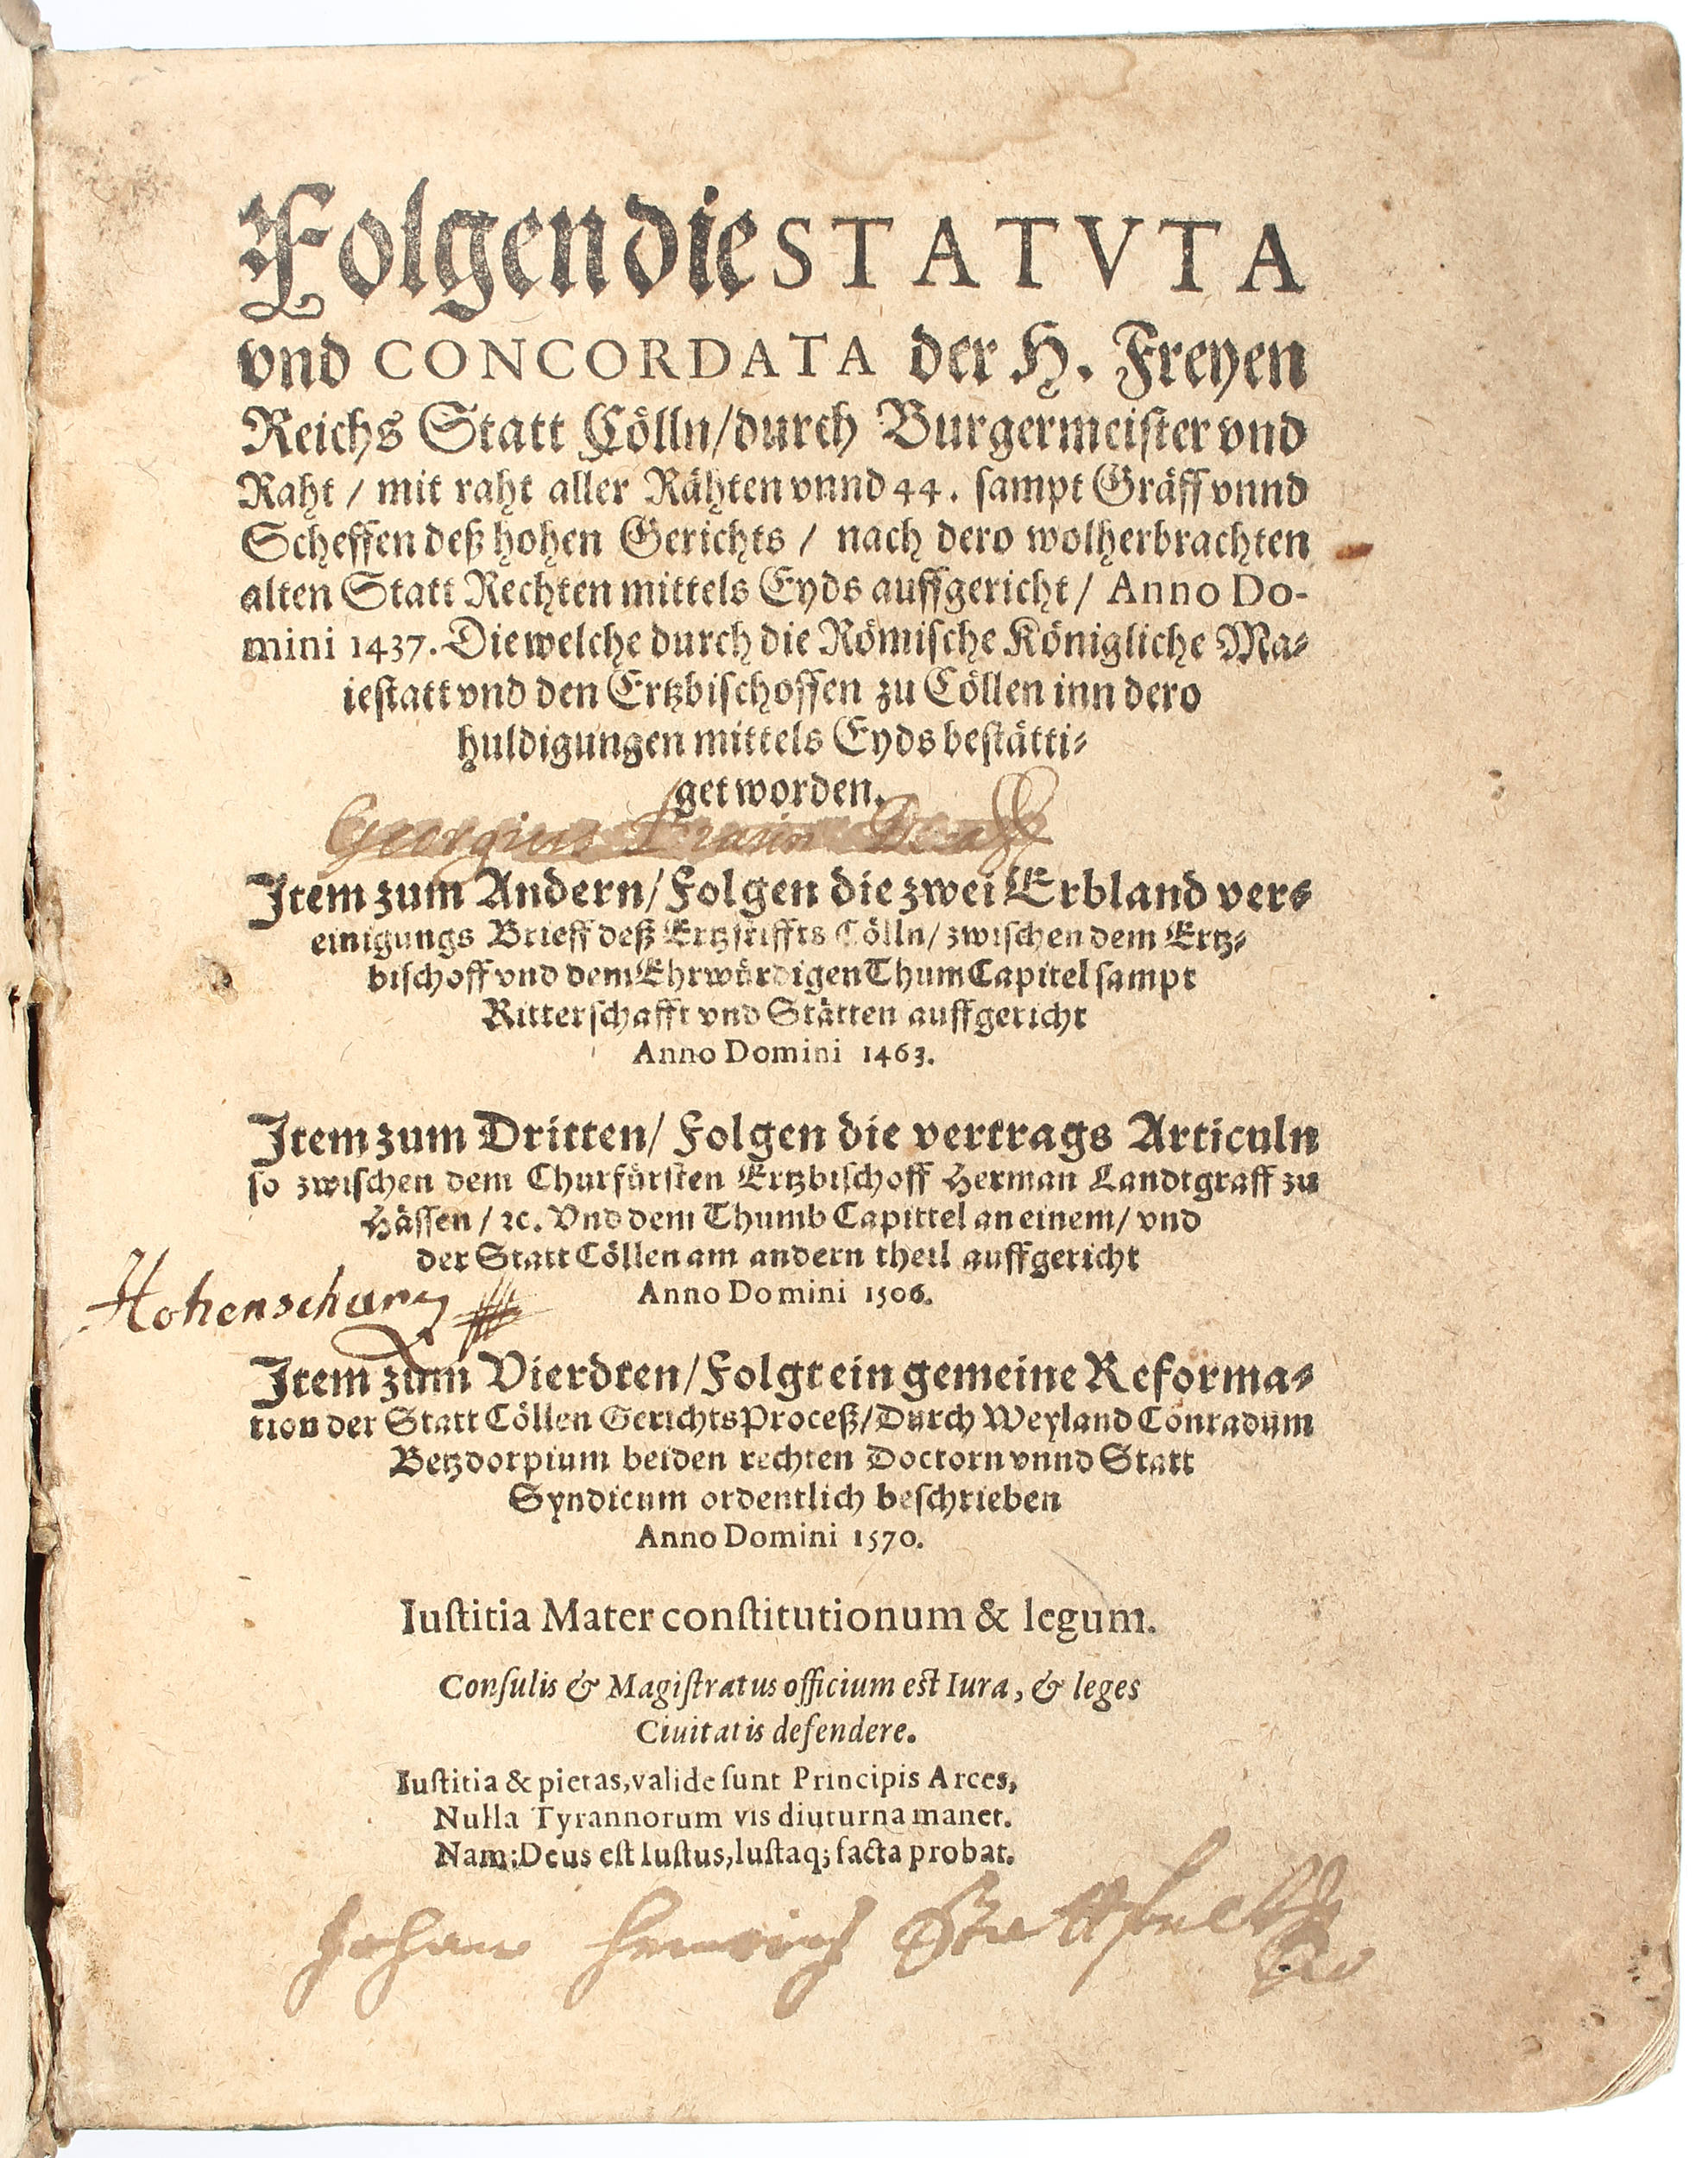 Folgen die STATVTA
vnd CONCORDATA der H. Freyen
Reichs Statt Cölln/durch Burgermeister vnd
Raht / mit raht aller Rähten vnnd 44. sampt Gräff vnnd
Scheffen deß hohen Gerichts / nach dero wolherbrachten
alten Statt Rechten mittels Eyds auffgericht / Anno Do-
mini 1437. Die welche durch die Römische Königliche Ma-
iestatt vnd den Ertzbischoffen zu Cöllen inn dero
huldigungen mittels Eyds bestätti-
get worden.
Georgius Braun
Item zum Andern/Folgen die zwei Erbland ver-
einigungs Brieff deß Ertzstiffts Cölln/ zwischen dem Ertz-
bischoff vnd dem Ehrwürdigen Thum Capitel sampt
Ritterschafft vnd Stätten auffgericht
Anno Domini 1463.
Item zum Dritten/ Folgen die vertrags Articuln
so zwischen dem Churfürsten Ertzbischoff Herman Landtgraff zu
Hässen / ꝛc. Vnd dem Thumb Capittel an einem/ vnd
der Statt Cöllen am andern theil auffgericht
Anno Domini 1506.
Hohenschurz
Item zum Vierdten/Folgt ein gemeine Reforma-
tion der Statt Cöllen Gerichts Proceß/Durch Weyland Conradum
Betzdorpium beiden rechten Doctorn vnnd Statt
Syndicum ordentlich beschrieben
Anno Domini 1570.
Iuſtitia Mater conſtitutionum & legum.
Conſulis & Magiſtratus officium eſt Iura, & leges
Ciuitatis defendere.
Iuſtitia & pietas, valide ſunt Principis Arces,
Nulla Tyrannorum vis diuturna manet.
Nam; Deus eſt Iuſtus, Iuſtaq; facta probat.
Johan Henrich